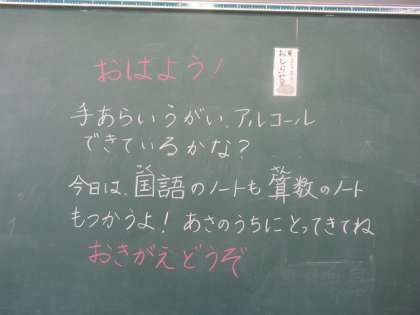 おはよう！
手あらいうがい、アルコール
できているかな？
今日は、国語のノートも算数のノート
もつかうよ！あさのうちにとってきてね
おきがえどうぞ